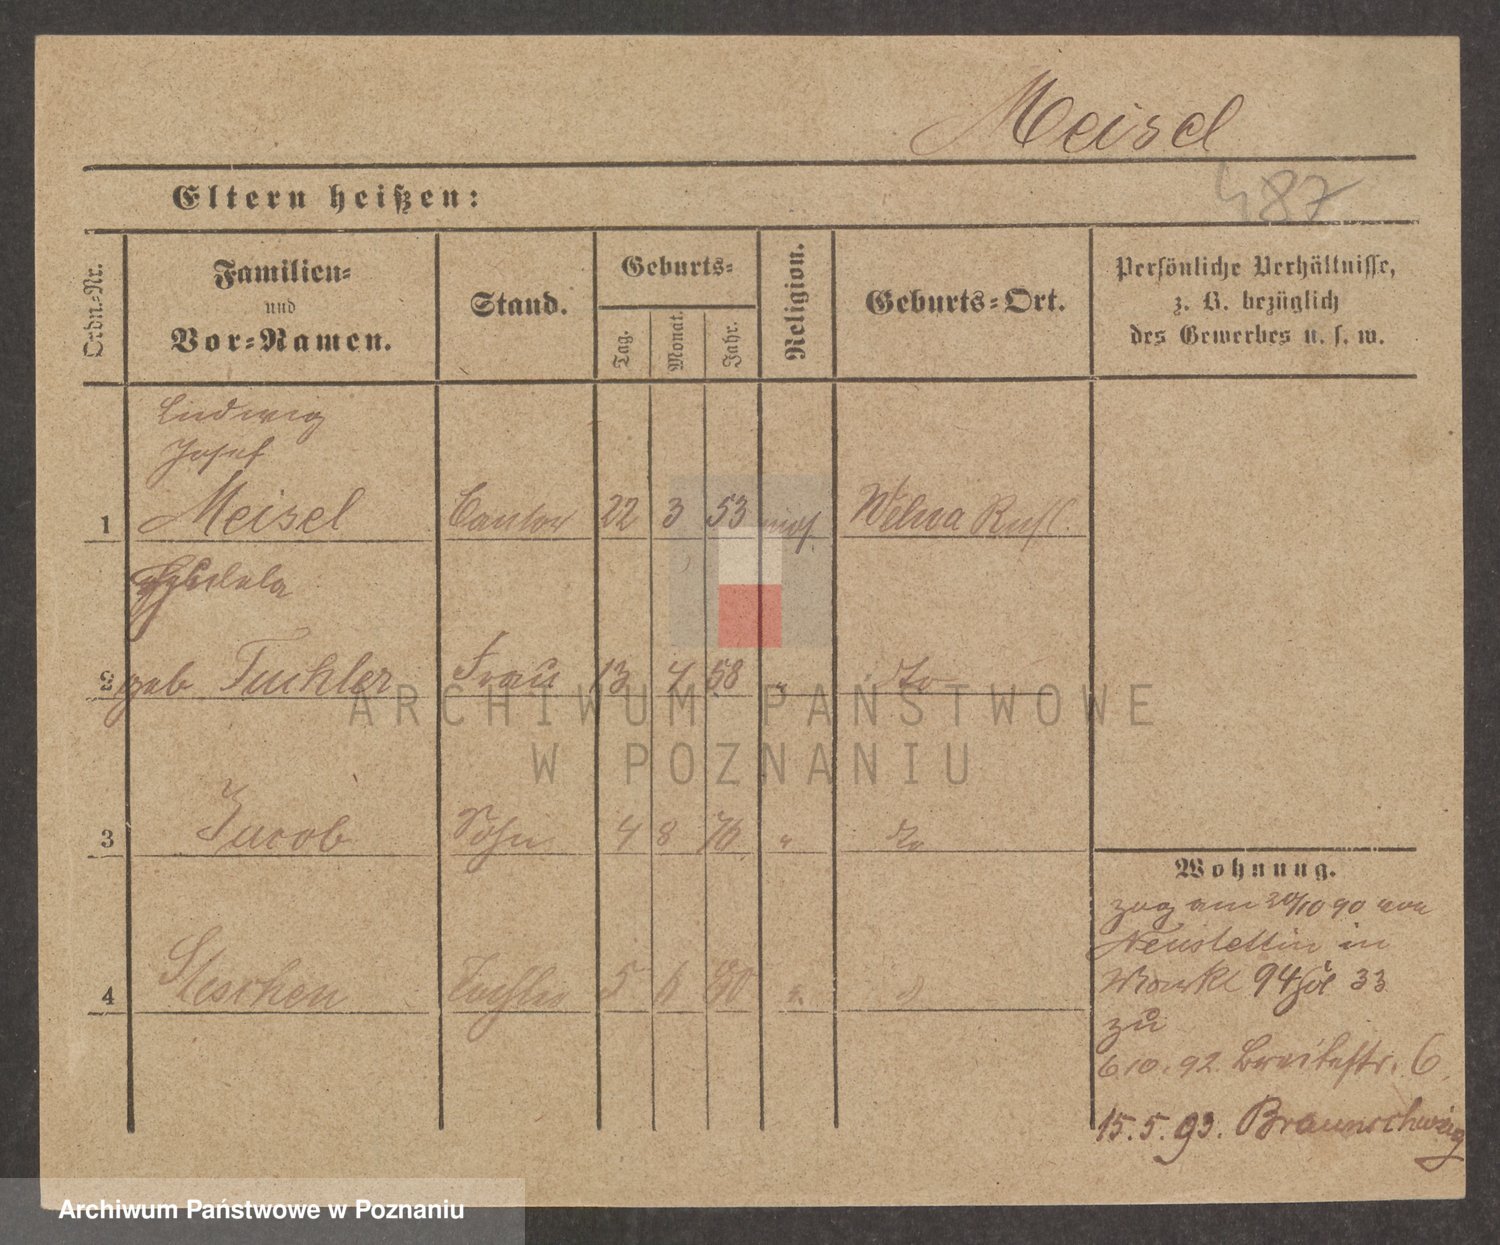 Meisel
487
Eltern heißen:
Ordn.=Nr.
Familien=
und
Vor=Namen.
Stand.
Geburts=
Tag.
Monat.
Jahr.
Religion.
Geburts=Ort.
Persönliche Verhältnisse,
z. B. bezüglich
des Gewerbes u. s. w.
Ludwig
Josef
1 Meisel Cantor 22 3 53 mos. Wilna Rußl.
2 geb Tuchler Frau 13 4 58 " Do
3 Jacob Sohn 4 8 76 " Do
4 Tochter 5 6 80 " "
Wohnung.
zog am 20/10 90 von
Neustettin in
94 33
zu
6.10.92. Breitestr. 6.
15.5.93. Braunschweig
ARCHIWUM PAŃSTWOWE
W POZNANIU
Archiwum Państwowe w Poznaniu